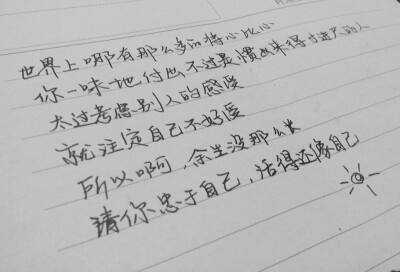 世界上哪有那么多的将心比心
你一味地付出不过是惯出来得寸进尺的人
太过考虑别人的感受
就注定自己不好受
所以啊，余生没那么长
请你忠于自己，活得还像自己